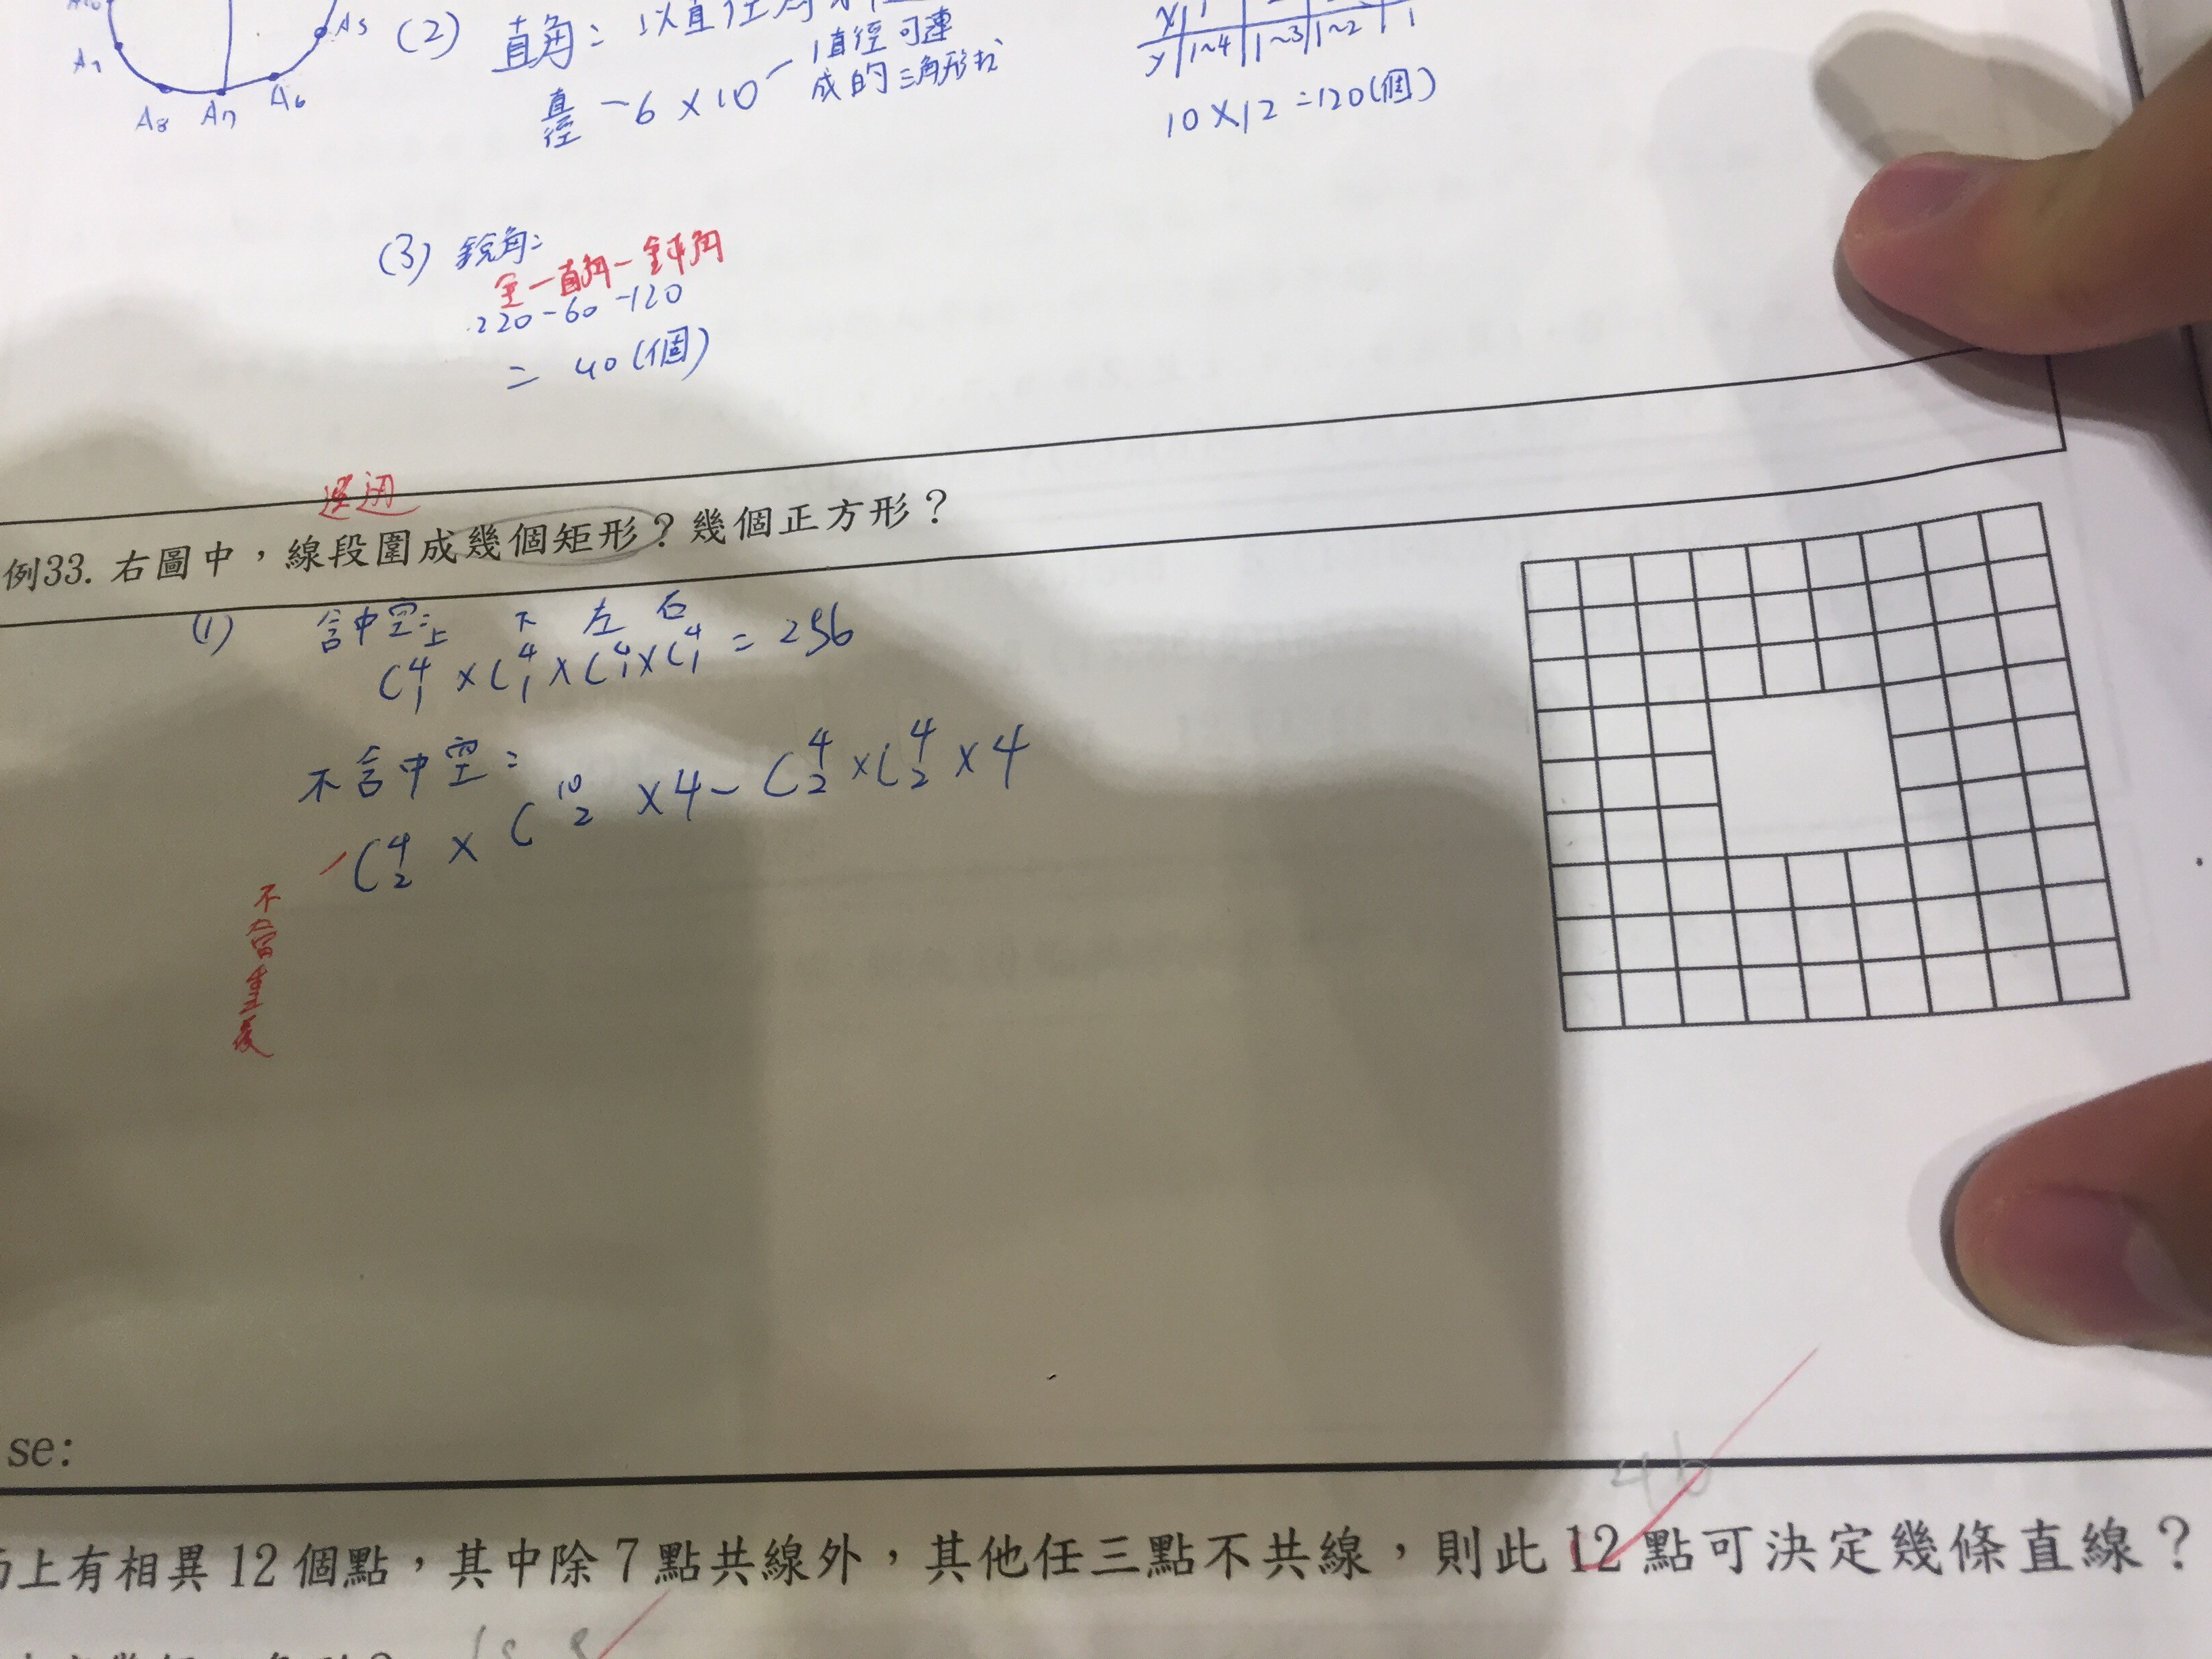 A5
A7
A8 A7 A6
(2) 直角:以直徑
直徑-6×10-1直徑可連
成的三角形數
y 1~4 1~3 1~2 1
10×12=120(個)
(3) 銳角:
全-直角-鈍角
220-60-120
= 40(個)
例33. 右圖中,線段圍成幾個矩形?幾個正方形?
(1) 含中空: 上 下 左 右
C⁴₁×C⁴₁×C⁴₁×C⁴₁=256
不含中空:
C⁴₂×C¹⁰₂×4-C⁴₂×C⁴₂×4
se:
46
上有相異12個點,其中除7點共線外,其他任三點不共線,則此12點可決定幾條直線?